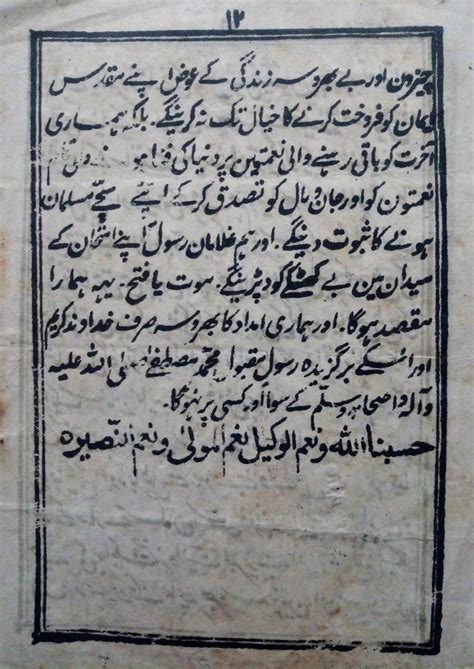 ۱۲
چیزون اور بے بھروسہ زندگی کے عوض اپنے مقدس
ایمان کو فروخت کرنے کا خیال تک نہ کرینگے۔ بلکہ ہماری
آخرت کو باقی رہنے والی نعمتین پر دنیا کی فنا ہونے والی تمام
نعمتون کو اور جان و مال کو تصدق کر کے اپنے سچّے مسلمان
ہونے کا ثبوت دینگے۔ اور ہم غلامان رسول اپنے امتحان کے
میدان مین بے کھٹکے کود پڑینگے۔ موت یا فتح۔ یہہ ہمارا
مقصد ہوگا۔ اور ہماری امداد کا بھروسہ صرف خداوند کریم
اور اسکے برگزیدہ رسول مقبول محمد مصطفےٰ صلی اللہ علیہ
وآلہ واصحابہ وسلّم کے سوا اور کسی پر نہوگا۔
حسبنا اللہ ونعم الوکیل نعم المولیٰ ونعم النّصیرہ